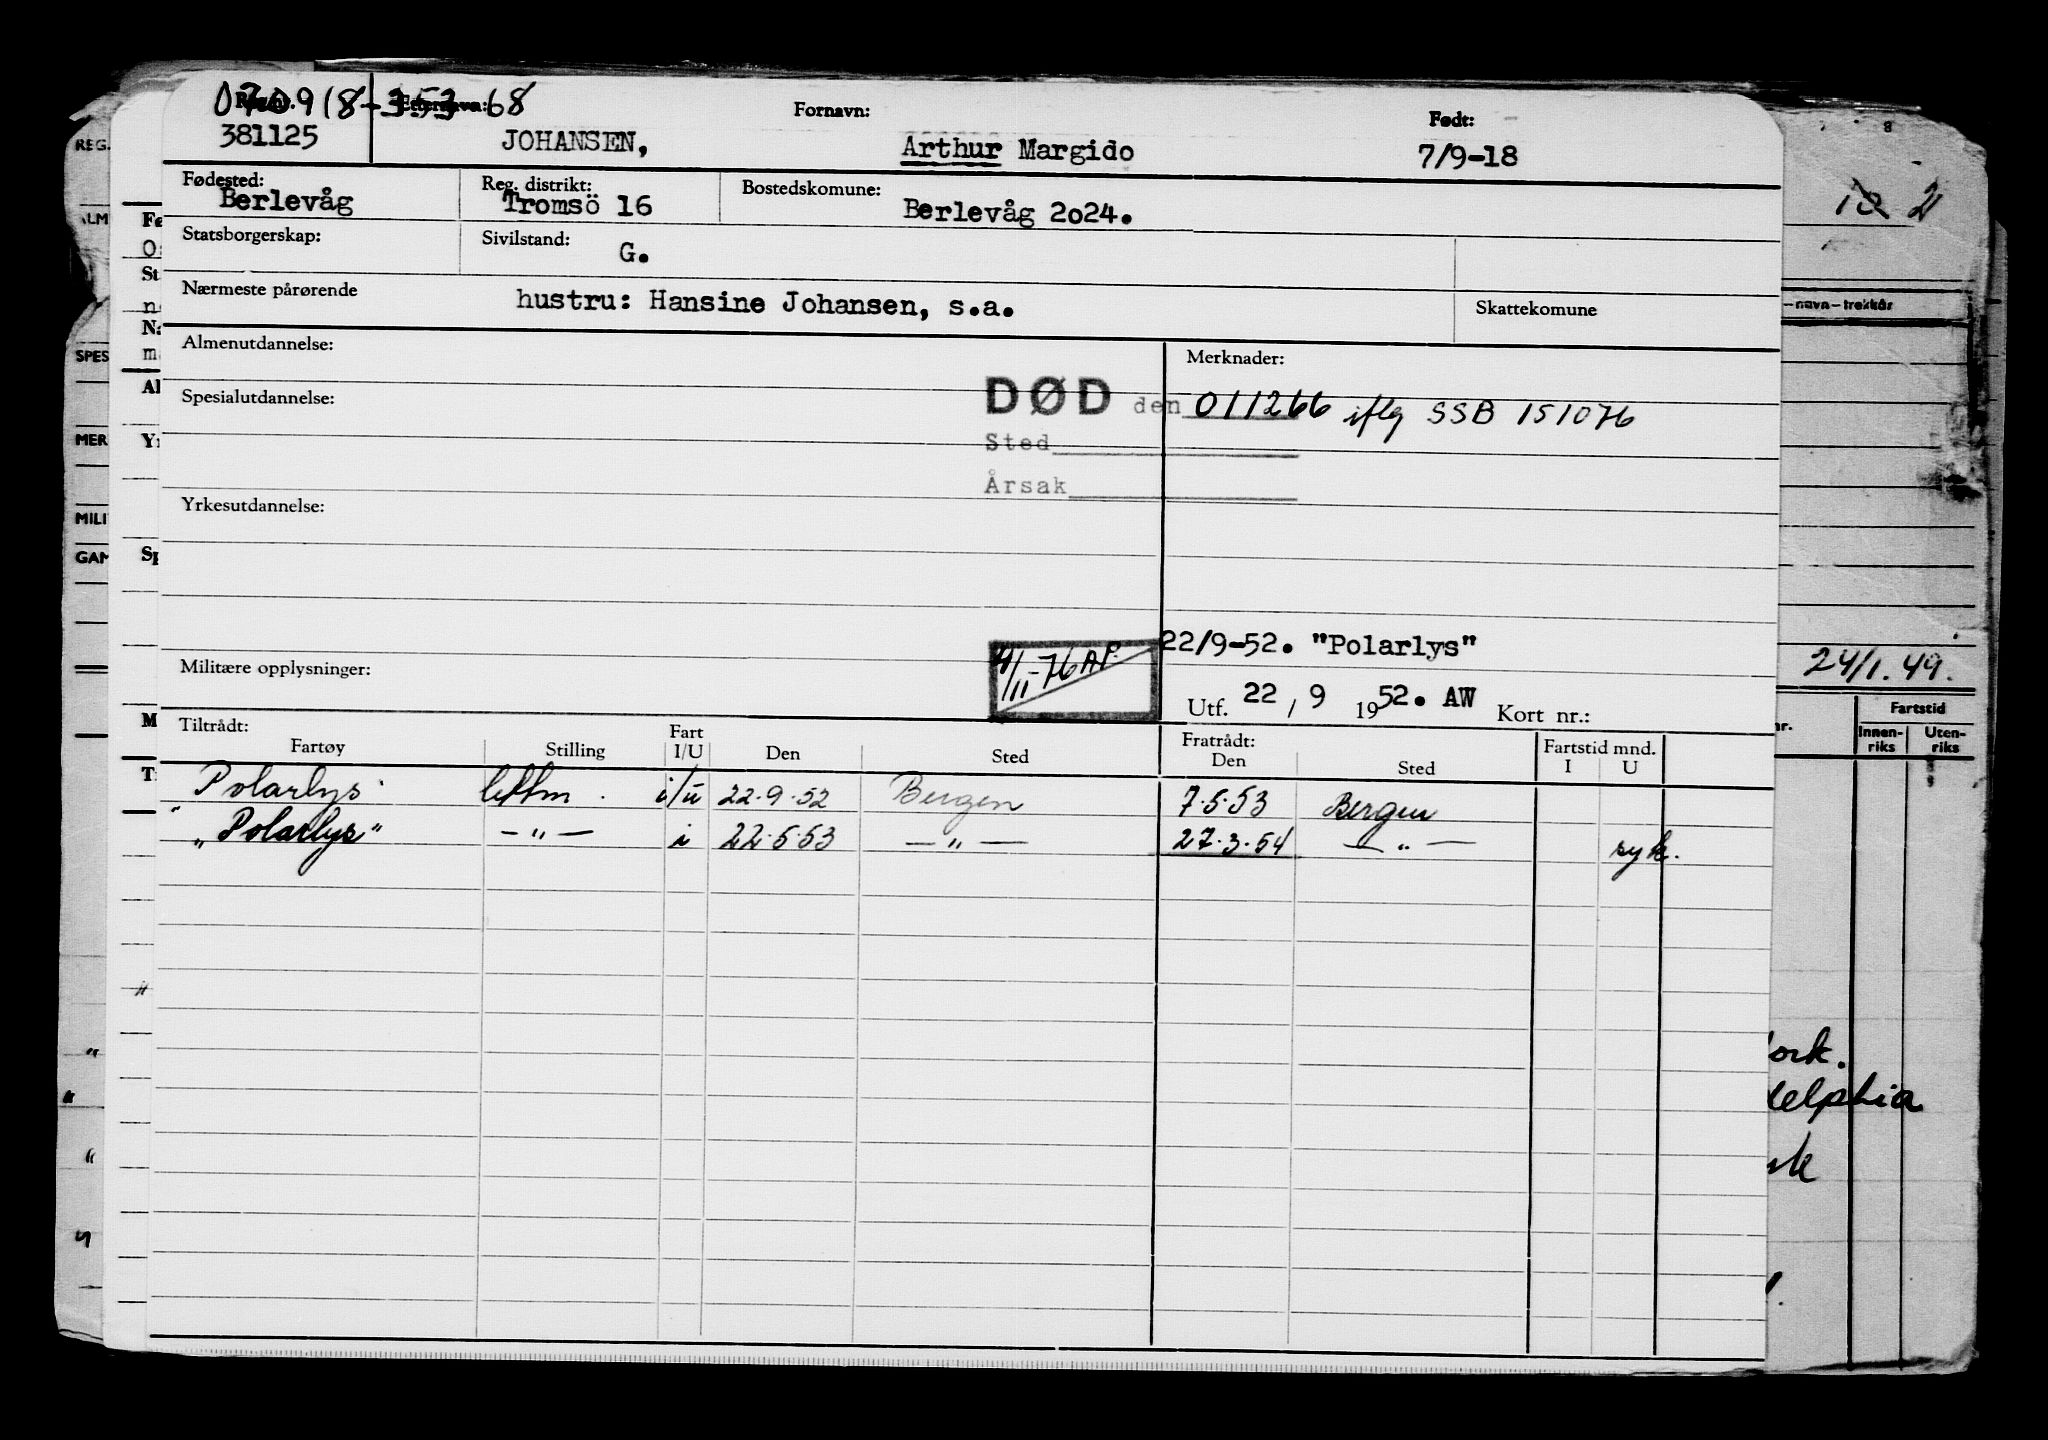 070918-35368
Reg.nr. Etternavn: Fornavn: Født:
381125 JOHANSEN, Arthur Margido 7/9-18
Fødested: Reg. distrikt: Bostedskomune:
Berlevåg Tromsö 16 Berlevåg 2o24.
Statsborgerskap: Sivilstand: G.
Nærmeste pårørende hustru: Hansine Johansen, s.a. Skattekomune
Almenutdannelse: Merknader:
Spesialutdannelse: DØD den 011266 iflg SSB 151076
Sted
Årsak
Yrkesutdannelse:
22/9-52. "Polarlys"
Militære opplysninger: 4/11-76 AF
Utf. 22 / 9 1952. AW Kort nr.:
Tiltrådt: Fart Fratrådt: Fartstid mnd.
Fartøy Stilling I/U Den Sted Den Sted I U
Polarlys lettm. i/u 22.9.52 Bergen 7.5.53 Bergen
"Polarlys" -"- i 22.5.53 -"- 27.3.54 -"- syk.
REG.
ALM
SPES
MER
MILI
GAM
10 2
-navn-trekkår
24/1.49.
nr. Fartstid
Innen-riks Uten-riks
ork.
delphia